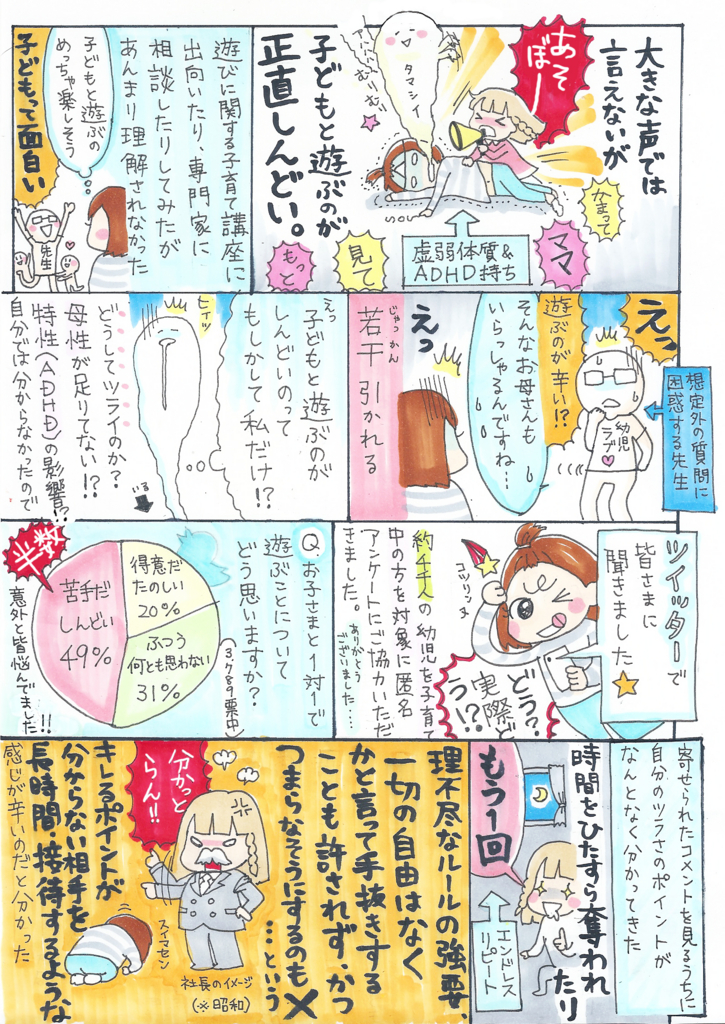 大きな声では
言えないが
あそ
ぼー
タマシイ
アハハ
むりむり
子どもと遊ぶのが
正直しんどい。
かまって
ママ
見て
もっと
虚弱体質&
ADHD持ち
遊びに関する子育て講座に
出向いたり、専門家に
相談したりしてみたが
あんまり理解されなかった
子どもと遊ぶの
めっちゃ楽しそう
子どもって面白い
先生
えっ
遊ぶのが辛い!?
そんなお母さんも
いらっしゃるんですね…
幼児
ラブ
想定外の質問に
困惑する先生
えっ
じゃっかん
若干引かれる
えっ
子どもと遊ぶのが
しんどいのって
もしかして私だけ!?
ヒィッ
どうしてツライのか?
母性が足りてない!?
特性(ADHD)の影響!?
自分では分からなかったので
ツイッターで
皆さまに
聞きました
コツリンヌ
どう?
実際ど
う!?
約4千人の幼児を子育て
中の方を対象に匿名
アンケートにご協力いただ
きました。
ありがとう
ございました…
Q.お子さまと1対1で
遊ぶことについて
どう思いますか?
(3,789票中)
半数
苦手だ
しんどい
49%
得意だ
たのしい
20%
ふつう
何とも思わない
31%
意外と皆悩んでました!!
寄せられたコメントを見るうちに
自分のツラさのポイントが
なんとなく分かってきた
時間をひたすら奪われ
たり
もう1回
エンドレス
リピート
理不尽なルールの強要、
一切の自由はなく
かと言って手抜きする
ことも許されず、かつ
つまらなそうにするのも×
…という
分かっと
らん!!
スイマセン
社長のイメージ
(※昭和)
キレるポイントが
分からない相手を
長時間・接待するような
感じが辛いのだと分かった